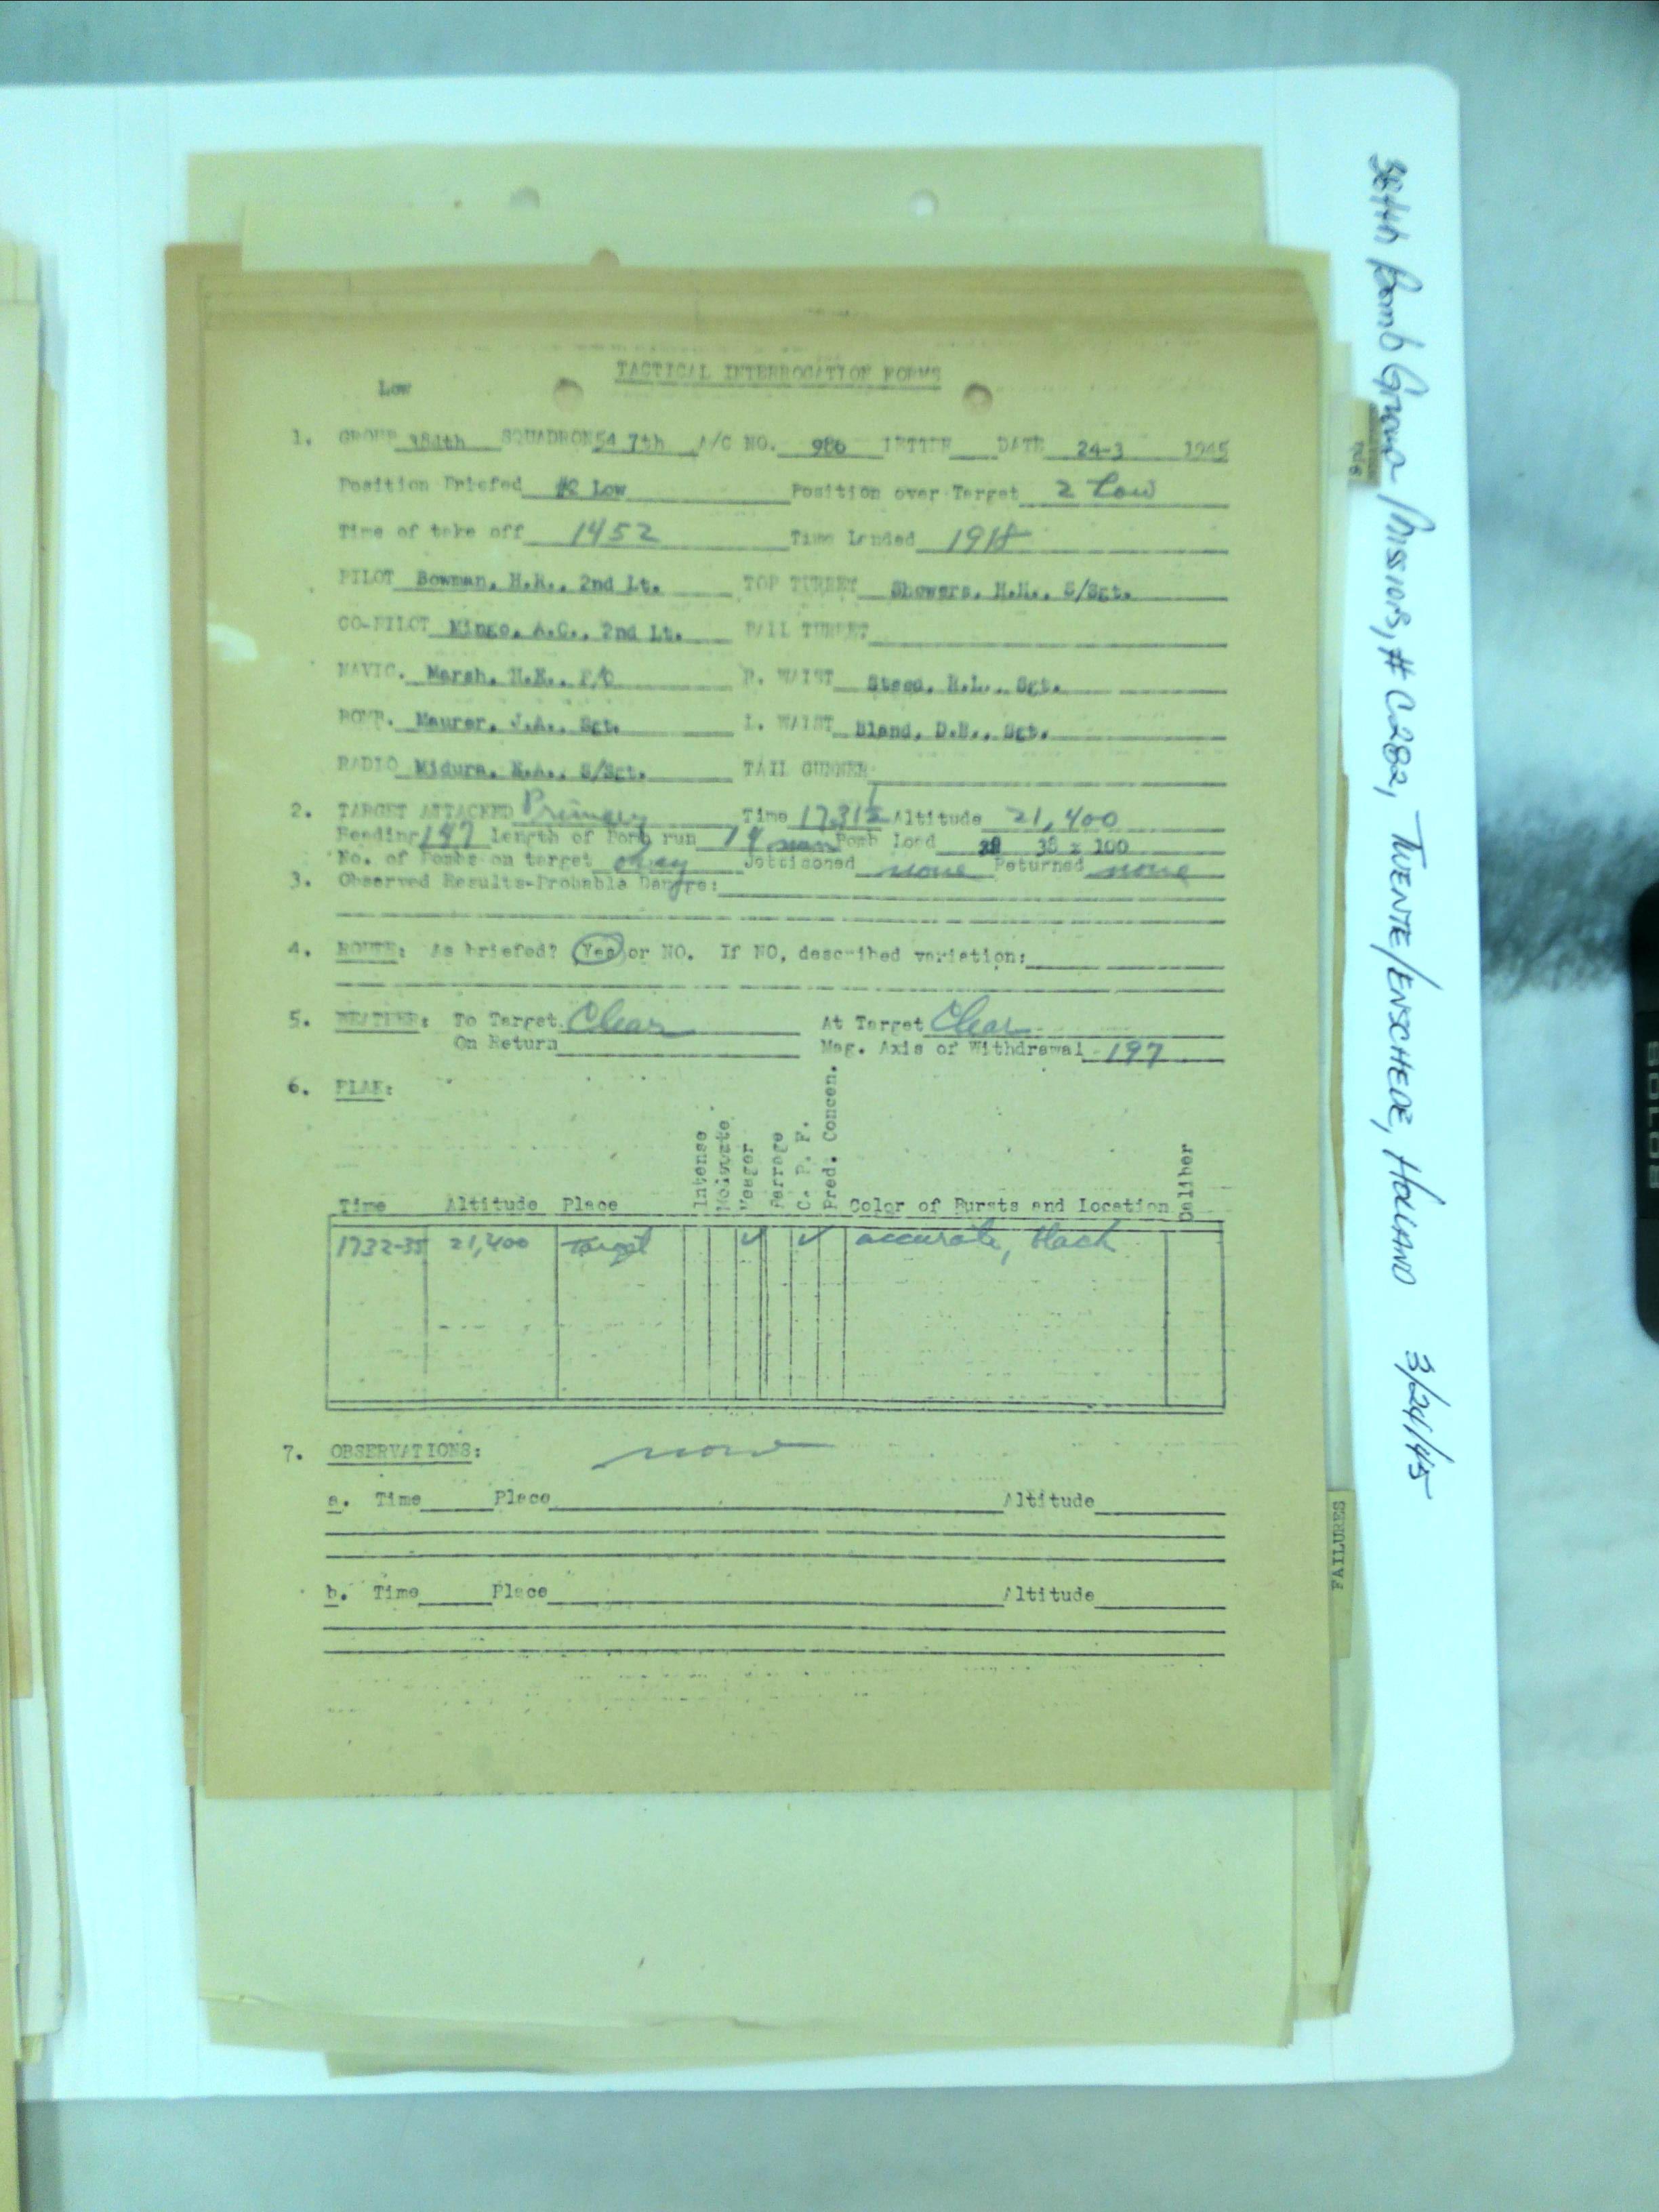 TACTICAL INTERROGATION FORMS
Low
1. GROUP 384th SQUADRON 547th A/C NO. 986 LETTER DATE 24-3 1945
Position Briefed #2 Low Position over Target 2 Low
Time of take off 1452 Time Landed
PILOT Bowman, H.R., 2nd Lt. TOP TURRET Showers, H.H., S/Sgt.
CO-PILOT Mingo, A.C., 2nd Lt. BALL TURRET
NAVIG. Marsh, H.E., F/O R. WAIST Steed, R.L., Sgt.
BOMB. Maurer, J.A., Sgt. L. WAIST Bland, D.E., Sgt.
RADIO Midura, E.A., S/Sgt. TAIL GUNNER
2. TARGET ATTACKED Primary Time 1731½ Altitude 21,400
Heading 147 Length of Bomb run 14 Bomb Load 38 x 100
No. of Bombs on target Jettisoned none Returned none
3. Observed Results-Probable Damage:
4. ROUTE: As briefed? Yes or NO. If NO, described variation:
5. WEATHER: To Target Clear At Target Clear
On Return Mag. Axis of Withdrawal 197
6. FLAK:
Time Altitude Place Intense Moderate Meager Barrage C. P. F. Pred. Concen. Color of Bursts and Location Caliber
1732-35 21,400 Target ✓ ✓ accurate, black
7. OBSERVATIONS: none
a. Time Place Altitude
b. Time Place Altitude
FAILURES
384th Bomb Group Mission, # C282, TWENTE/ENSCHEDE, HOLLAND 3/24/45